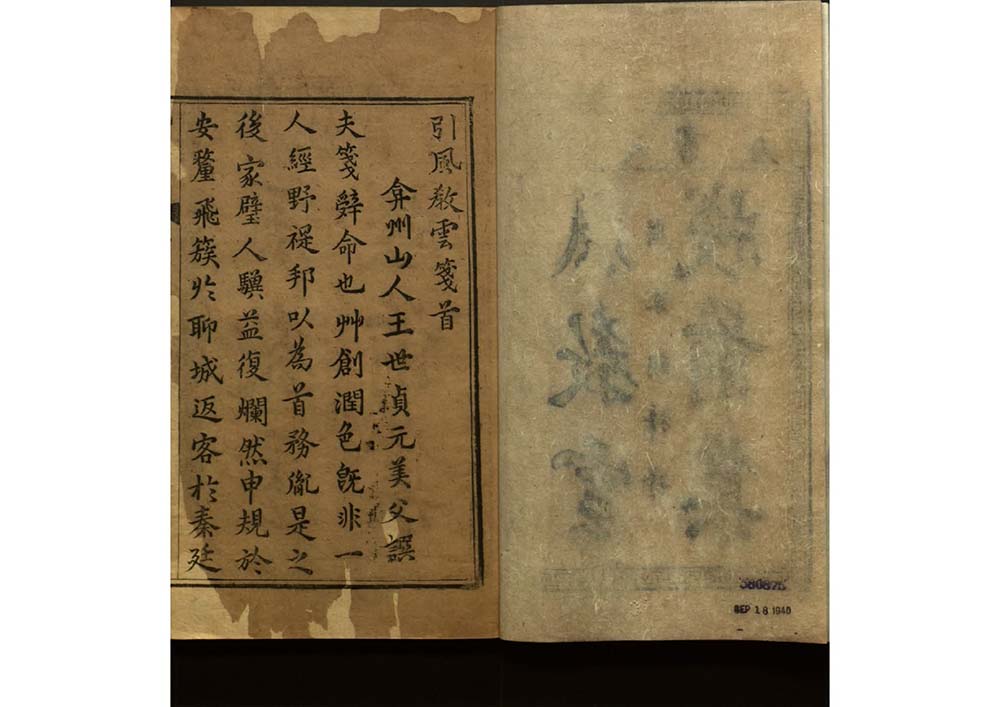 引風敎雲箋首
弇州山人王世貞元美父譔
夫箋辭命也艸創潤色旣非一
人經野禔邦以為首務胤是之
後家璧人驥益復爛然申規於
安釐飛簇於聊城返客於秦廷
380875
SEP 18 1940